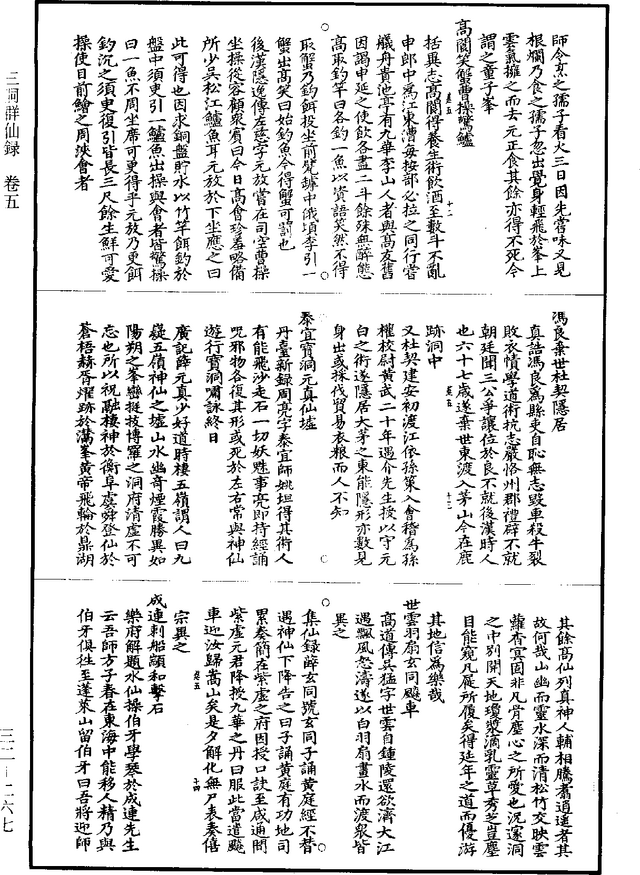 師令烹之孺子看火三日因先嘗味又見
根爛乃食之孺子忽出覺身輕飛於峯上
雲氣擁之而去元正食其餘亦得不死今
謂之童子峯
高閬笑蟹曹操驚鱸
括異志高閬得養生術飲酒至數斗不亂
申郎中爲江東漕每按部必拉之同行嘗
艤舟貴池亭有九華李山人者與高友舊
因謁申延之使飲各盡二斗餘殊無醉態
高取釣竿曰各釣一魚以資語笑然不得
取蟹乃釣餌投坐前甃罅中俄頃李引一
蟹出高笑曰始釣魚今得蟹可罰也
後漢隱逸傳左慈字元放嘗在司空曹操
坐操從容顧衆賓曰今日高會珍羞略備
所少吳松江鱸魚耳元放於下坐應之曰
此可得也因求銅盤貯水以竹竿餌釣於
盤中須更引一鱸魚出操與會者皆驚操
曰一魚不周坐席可更得乎元放乃更餌
釣沉之須更復引皆長三尺餘生鮮可愛
操使目前鱠之周浹會者
馮良棄世杜契隱居
真誥馮良爲縣吏自恥無志毀車殺牛裂
敗衣幘學道術抗志嚴恪州郡禮辟不就
朝廷聞三公爭讓位於良不就後漢時人
也六十七歲遂棄世東渡入茅山今在鹿
跡洞中
又杜契建安初渡江依孫策入會稽爲孫
權校尉黃武二十年遇介先生授以守元
白之術遂隱居大茅之東能隱形亦數見
身出或採伐貿易衣糧而人不知
泰宜寶洞元真仙墟
丹臺新錄周亮字泰宜師姚坦得其術人
有能飛沙走石一切妖魅事亮即持經誦
呪邪物各復其形或死於左右常與神仙
遊行寶洞嘯詠終日
廣記薛元真少好道時棲五嶺謂人曰九
嶷五嶺神仙之墟山水幽奇煙霞勝異如
陽朔之峯巒挺拔博羅之洞府清虛不可
忘也所以祝融棲神於衡阜虞舜登仙於
蒼梧赫胥耀跡於潛峯黃帝飛輪於鼎湖
其餘高仙列真神人輔相騰翥逍遙者其
故何哉山幽而靈水深而清松竹交映雲
蘿杳冥固非凡骨塵心之所愛也況邃洞
之中別開天地瓊漿滴乳靈草秀芝豈塵
目能窺凡屐所履矣得延年之道而優游
其地信爲樂哉
世雲羽扇玄同飈車
高道傳吳猛字世雲自鍾陵還欲濟大江
遇飄風怒濤遂以白羽扇畫水而渡衆皆
異之
集仙錄薛玄同號玄同子誦黃庭經不替
遇神仙下降告之曰子誦黃庭有功地司
累奏簡在紫虛之府因授口訣至咸通間
紫虛元君降授九華之丹曰服此當遣飈
車迎汝歸嵩山矣是夕解化無尸表奏僖
宗異之
成連刺船顓和擊石
樂府解題水仙操伯牙學琴於成連先生
云吾師方子春在東海中能移人精乃與
伯牙俱往至蓬萊山留伯牙曰吾將迎師
三洞群仙録 卷五
三二—二六七